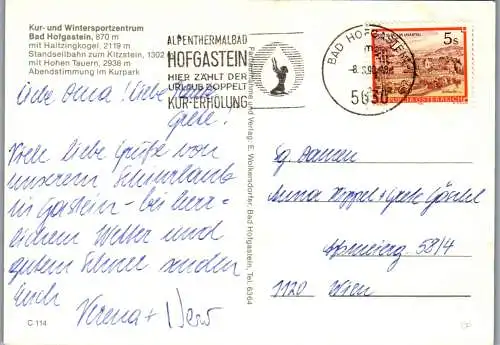 Kur- und Wintersportzentrum
Bad Hofgastein, 870 m
mit Haitzingkogel, 2119 m
Standseilbahn zum Kitzstein, 1302
mit Hohen Tauern, 2938 m
Abendstimmung im Kurpark
ALPENTHERMALBAD
HOFGASTEIN
HIER ZÄHLT DER
URLAUB DOPPELT
KUR-ERHOLUNG
BAD HOFGASTEIN
5630
5 S
REPUBLIK ÖSTERREICH
Liebe Oma! Liebe Tante
Grete!
Viele liebe Grüße von
unserem Schiurlaub
in Gastein - bei herr-
lichem Wetter und
gutem Schnee senden
Euch
Verena +
und Verlag: E. Wolkersdorfer, Bad Hofgastein, Tel. 6364
Anna + Grete
58/4
1120 Wien
C 114